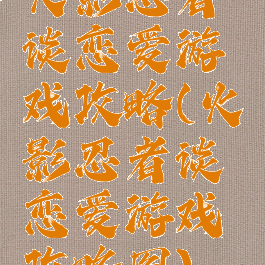 火影忍者
谈恋爱游
戏攻略(火
影忍者谈
恋爱游戏
攻略图)